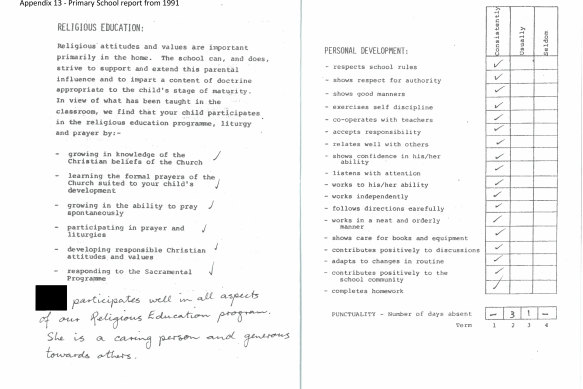 Appendix 13 - Primary School report from 1991
RELIGIOUS EDUCATION:
Religious attitudes and values are important
primarily in the home. The school can, and does,
strive to support and extend this parental
influence and to impart a content of doctrine
appropriate to the child's stage of maturity.
In view of what has been taught in the
classroom, we find that your child participates
in the religious education programme, liturgy
and prayer by:-
- growing in knowledge of the ✓
Christian beliefs of the Church
- learning the formal prayers of the
Church suited to your child's ✓
development
- growing in the ability to pray ✓
spontaneously
- participating in prayer and ✓
liturgies
- developing responsible Christian ✓
attitudes and values
- responding to the Sacramental ✓
Programme
participates well in all aspects
of our Religious Education program.
She is a caring person and generous
towards others.
Consistently
Usually
Seldom
PERSONAL DEVELOPMENT:
- respects school rules ✓
- shows respect for authority ✓
- shows good manners ✓
- exercises self discipline ✓
- co-operates with teachers ✓
- accepts responsibility ✓
- relates well with others ✓
- shows confidence in his/her ✓
ability
- listens with attention ✓
- works to his/her ability ✓
- works independently ✓
- follows directions carefully ✓
- works in a neat and orderly ✓
manner
- shows care for books and equipment ✓
- contributes positively to discussions ✓
- adapts to changes in routine ✓
- contributes positively to the ✓
school community
- completes homework ✓
PUNCTUALITY - Number of days absent - 3 1 -
Term 1 2 3 4